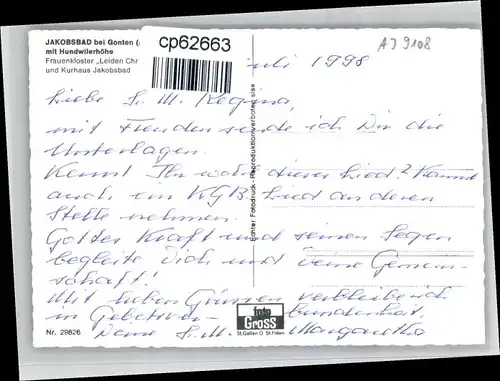 JAKOBSBAD bei Gonten (
mit Hundwilerhöhe
Frauenkloster „Leiden Chr
und Kurhaus Jakobsbad
cp62663
AJ 9108
Juli 1998
Liebe S. M. Regina,
mit Freuden sende ich Dir die
Unterlagen.
Kennt Ihr wohl dieses Lied? Könnt
auch ein KGB Lied an deren
Stelle nehmen.
Gottes Kraft und seinen Segen
begleite Dich und Deine Gemein-
schaft!
Mit lieben Grüssen verbleibe ich
in Gebetsver- bundenheit,
Deine S. M. Margaretha
Echter Fotodruck - Reproduktion verboten
foto
GROSS
St.Gallen O St.Fiden
Nr. 29826